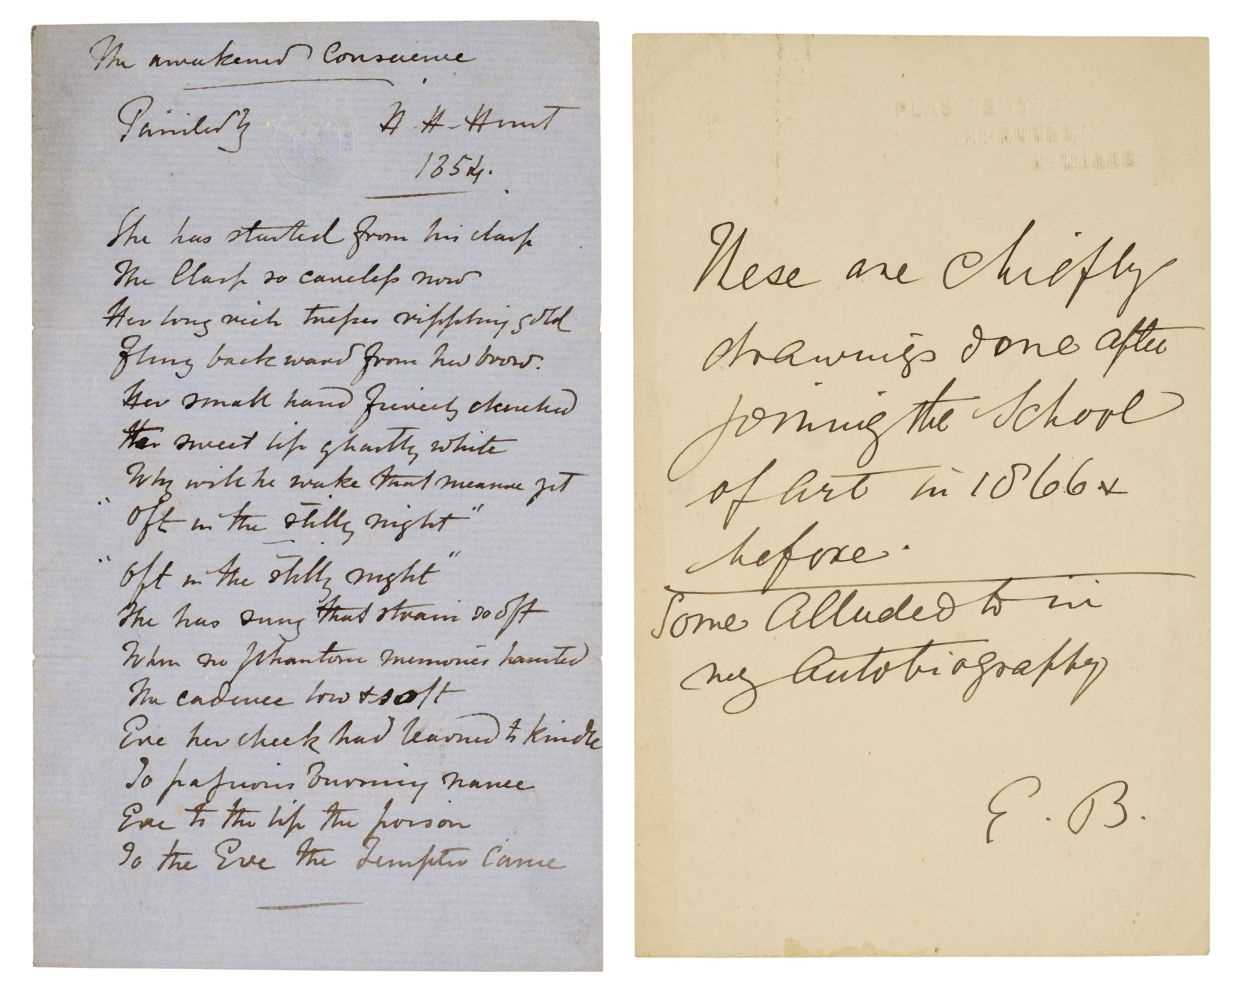 The awakened Conscience
Painted by H. H. Hunt
1854.
She has started from his clasp
The Clasp so careless now
Her long rich tresses rippling gold
Fling backward from her brow.
Her small hand fiercely clenched
Her sweet lip ghastly white
Why will he wake that measure yet
"Oft in the stilly night"
"Oft in the stilly night"
She has sung that strain so oft
When no phantom memories haunted
The cadence low & soft
Ere her cheek had learned to kindle
To passions burning
Ere to the lip the poison
To the Eve the Tempter Came
These are chiefly
drawings done after
joining the School
of Art in 1866 &
before.
Some Alluded to in
my Autobiography
E. B.